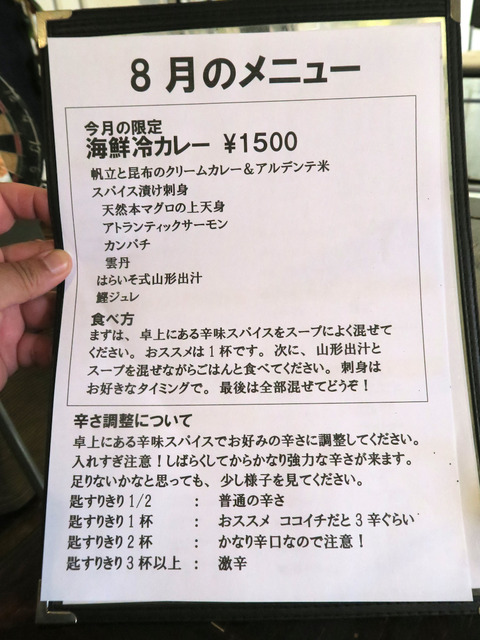 8月のメニュー
今月の限定
海鮮冷カレー ¥1500
帆立と昆布のクリームカレー&アルデンテ米
スパイス漬け刺身
天然本マグロの上天身
アトランティックサーモン
カンパチ
雲丹
はらいそ式山形出汁
鰹ジュレ
食べ方
まずは、卓上にある辛味スパイスをスープによく混ぜて
ください。おススメは1杯です。次に、山形出汁と
スープを混ぜながらごはんと食べてください。刺身は
お好きなタイミングで。最後は全部混ぜてどうぞ!
辛さ調整について
卓上にある辛味スパイスでお好みの辛さに調整してください。
入れすぎ注意!しばらくしてからかなり強力な辛さが来ます。
足りないかなと思っても、少し様子を見てください。
匙すりきり1/2 : 普通の辛さ
匙すりきり1杯 : おススメ ココイチだと3辛ぐらい
匙すりきり2杯 : かなり辛口なので注意!
匙すりきり3杯以上 : 激辛